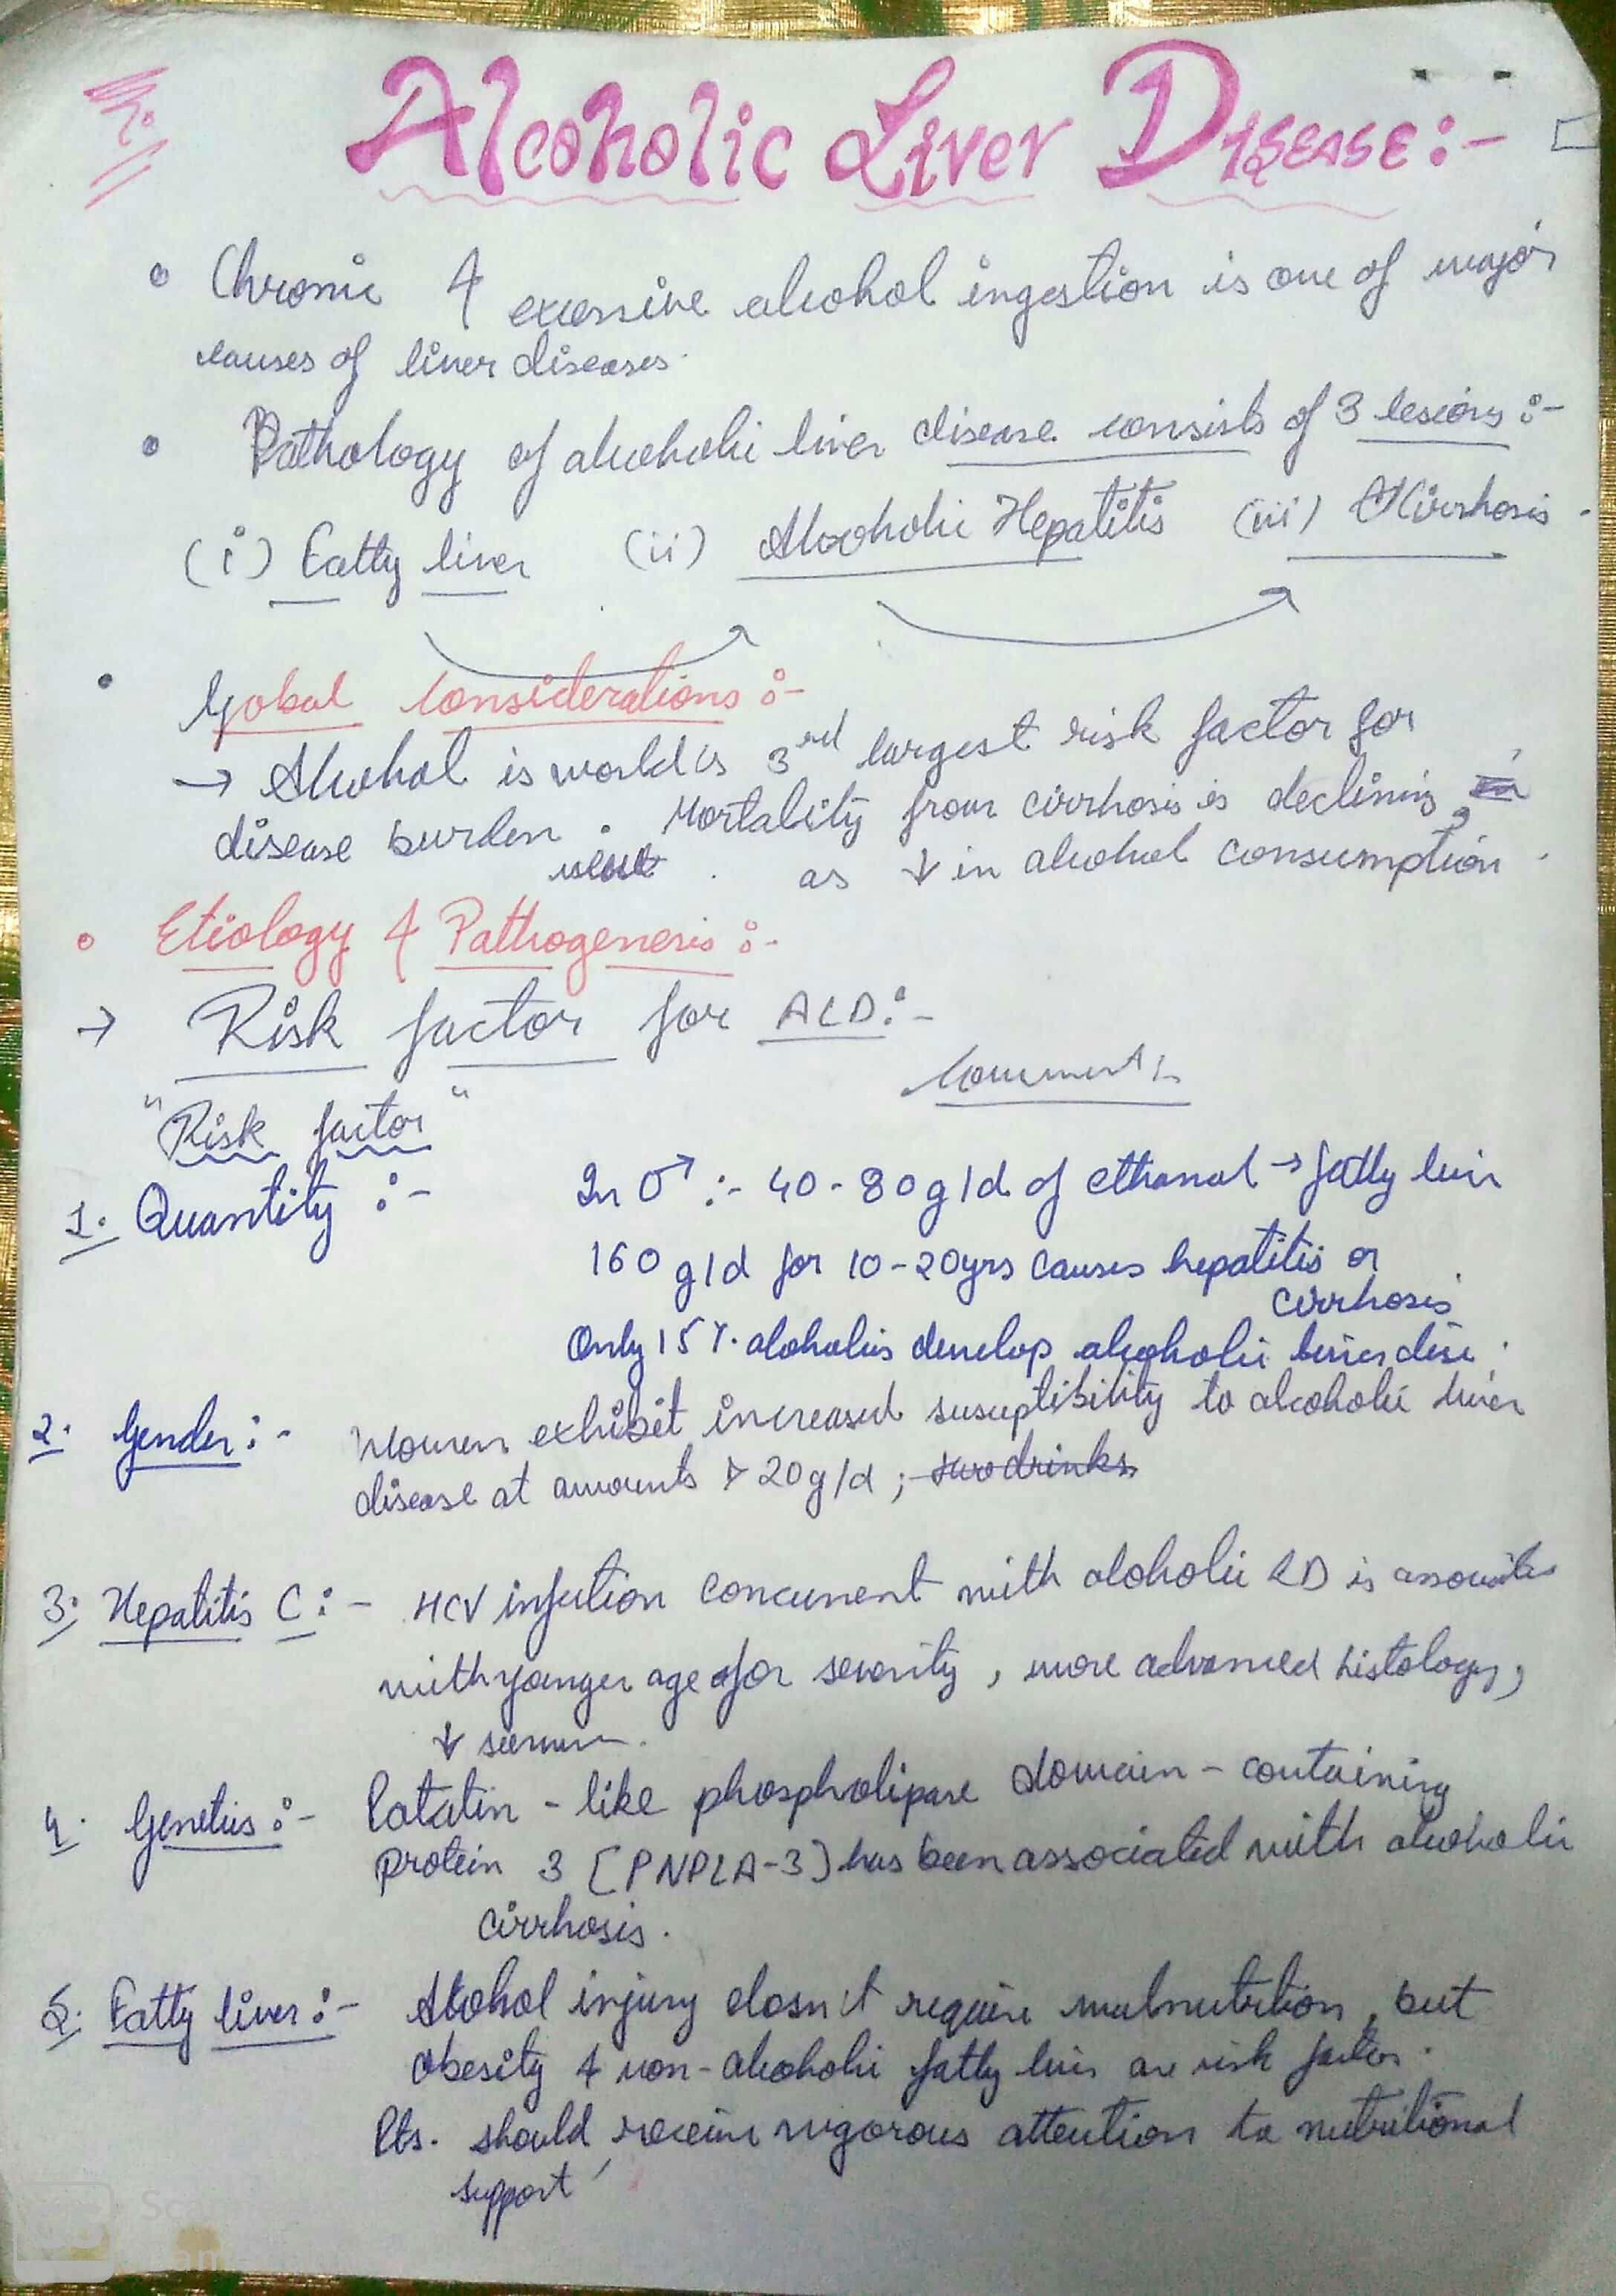 Alcoholic Liver Disease:-
• Chronic & excessive alcohol ingestion is one of major
causes of liver diseases.
• Pathology of alcoholic liver disease consists of 3 lesions :-
(i) Fatty liver (ii) Alcoholic Hepatitis (iii) Cirrhosis.
• Global Considerations :-
→ Alcohol is world's 3rd largest risk factor for
disease burden. Mortality from cirrhosis is declining,
as ↓ in alcohol consumption.
• Etiology & Pathogenesis :-
→ Risk factor for ALD:-
Comment :-
"Risk factor"
1. Quantity :- In ♂ :- 40-80g/d of ethanol → fatty liver
160 g/d for 10-20yrs causes hepatitis or
cirrhosis
Only 15% alcoholics develop alcoholic liver dise.
2. Gender :- Women exhibit increased susceptibility to alcoholic liver
disease at amounts > 20g/d ; two drinks
3. Hepatitis C :- HCV infection concurrent with alcoholic LD is associates
with younger age for severity, more advanced histology,
↓
4. Genetics :- Patatin-like phospholipase domain-containing
protein 3 [PNPLA-3] has been associated with alcoholic
cirrhosis.
5. Fatty liver :- Alcohol injury dosn't require malnutrition, but
obesity & non-alcoholic fatty liver are risk factors.
Pts. should receive vigorous attention to nutritional
support